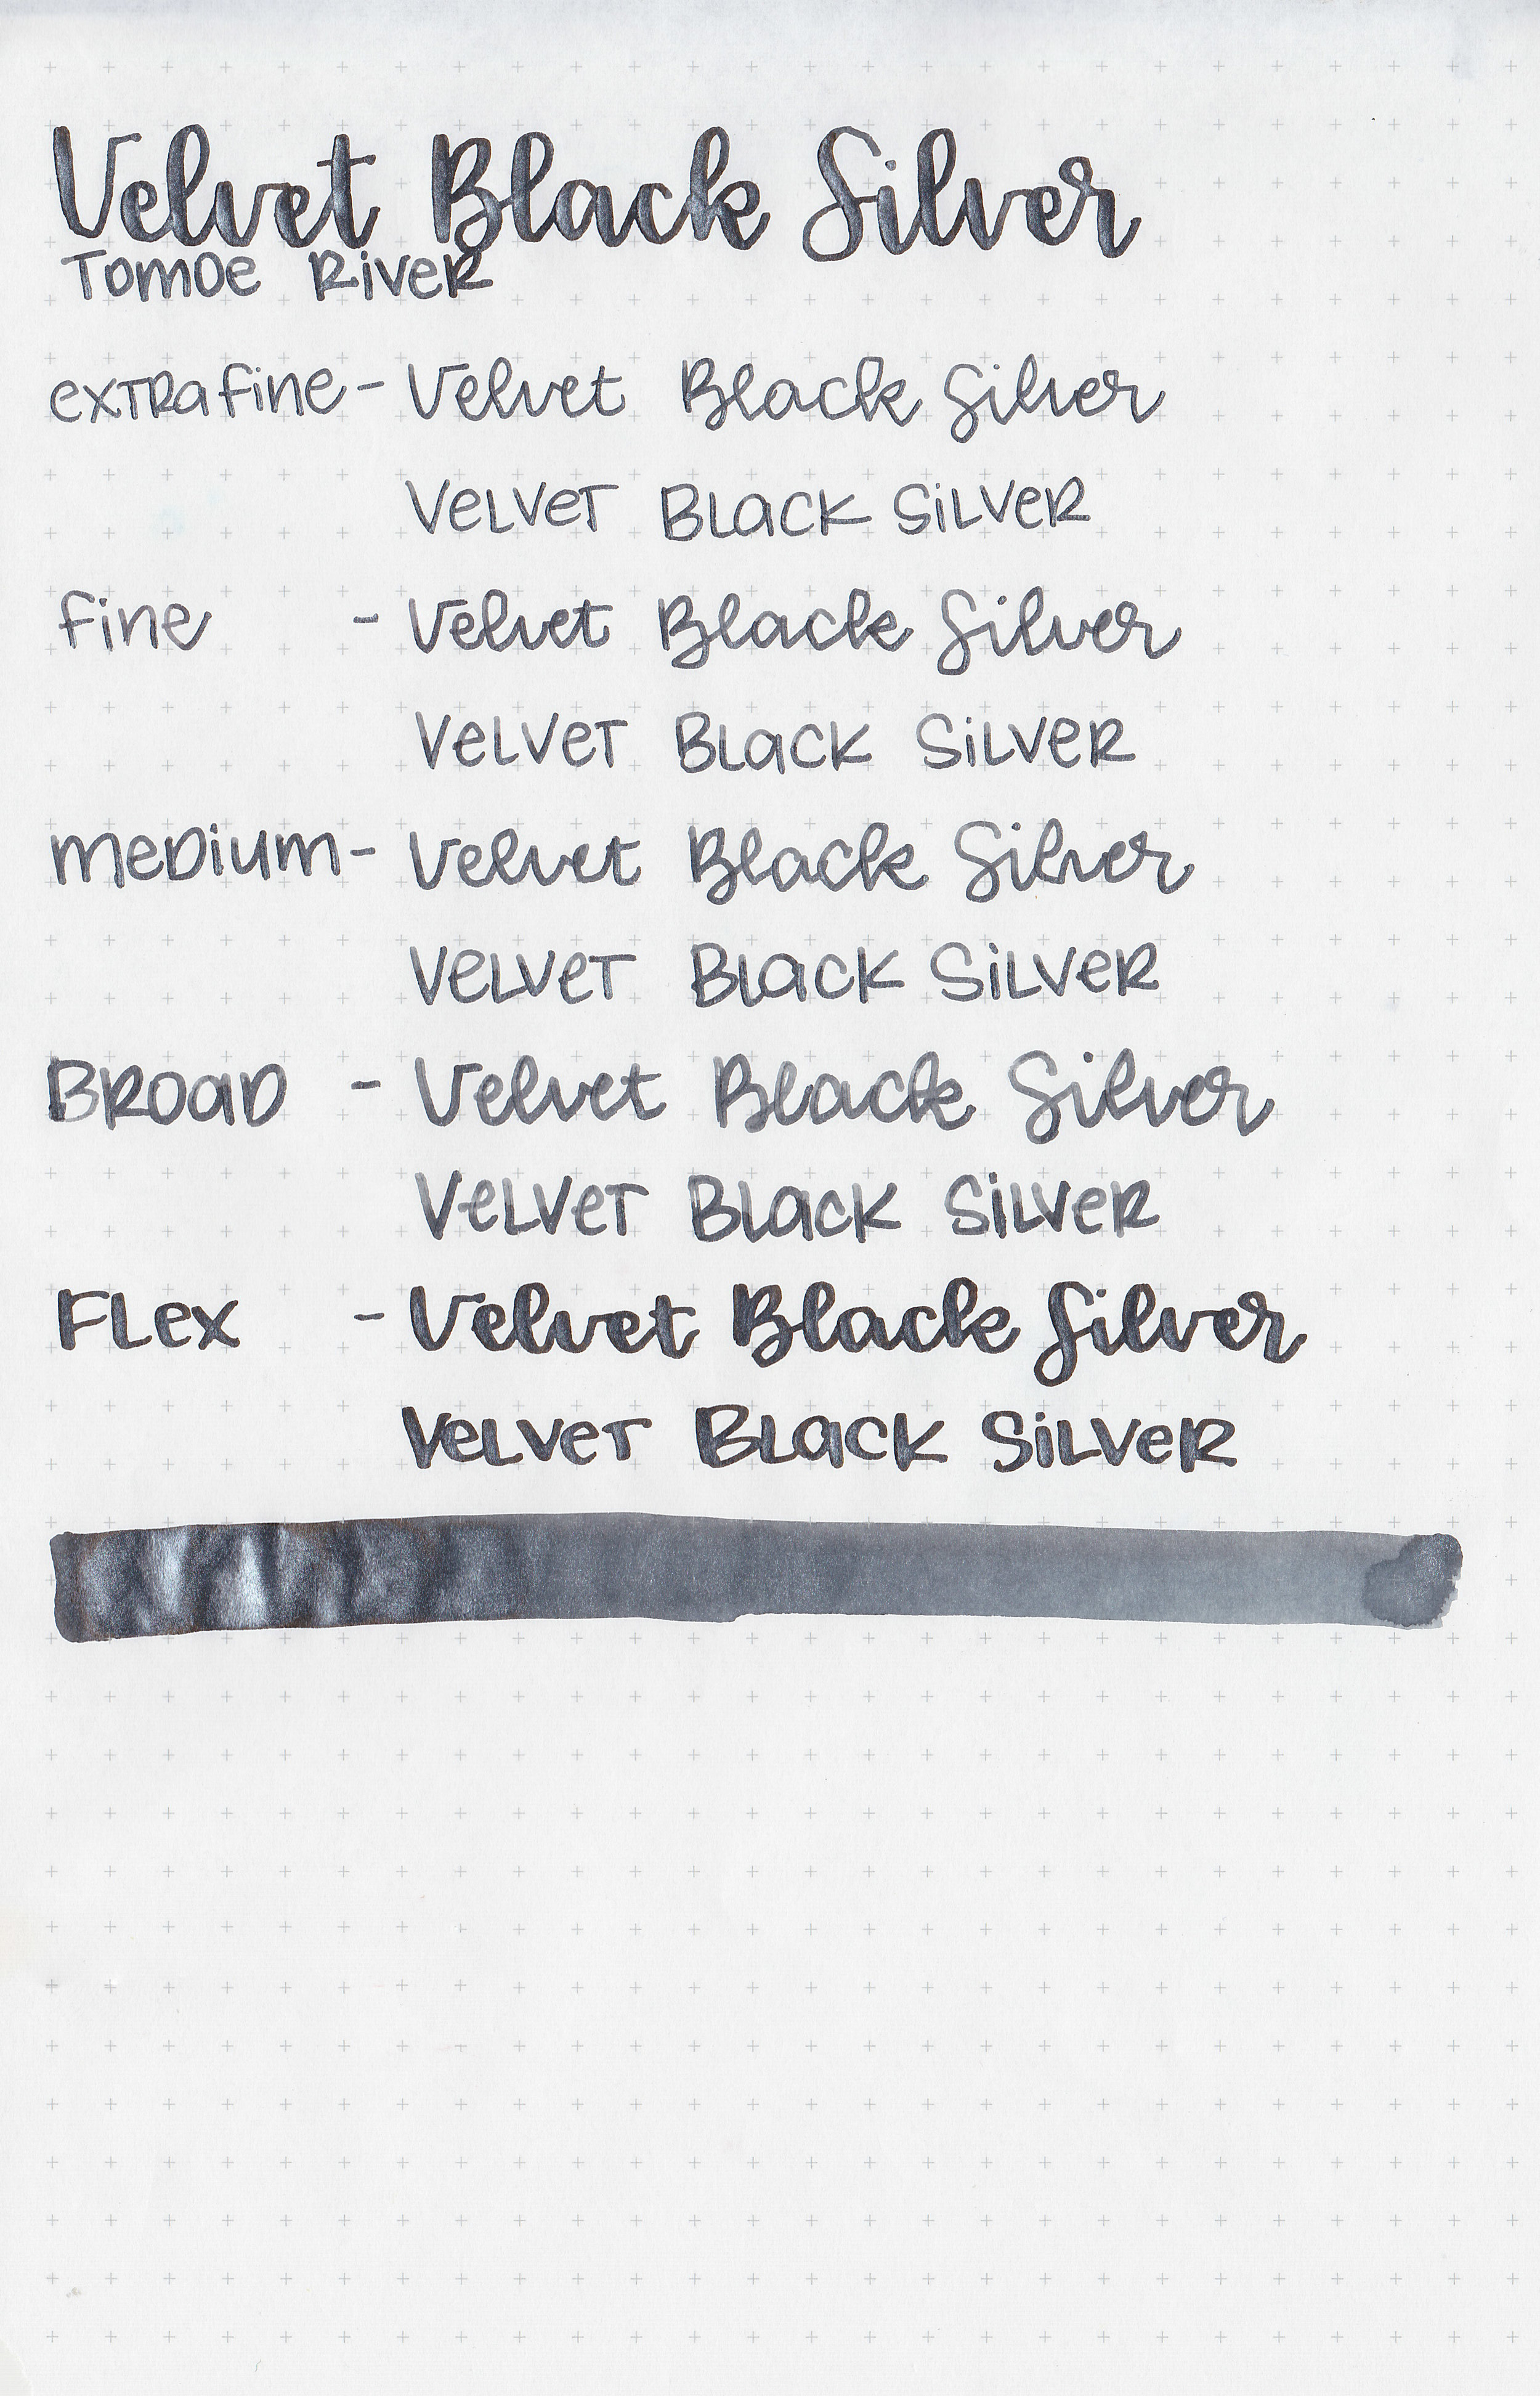 Velvet Black Silver
Tomoe River
extra fine - Velvet Black Silver
Velvet Black Silver
fine - Velvet Black Silver
Velvet Black Silver
medium - Velvet Black Silver
Velvet Black Silver
Broad - Velvet Black Silver
Velvet Black Silver
Flex - Velvet Black Silver
Velvet Black Silver